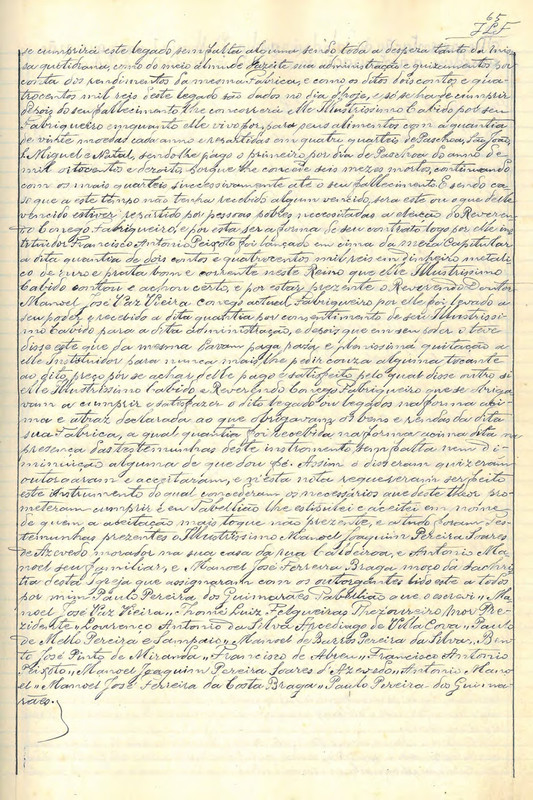 65
J L F
se cumprirá este legado sem falta alguma sendo toda a despeza tanto da mis
sa quotidiana, como do meio almude d'azeite sua administração e guizamentos por
conta dos rendimentos da mesma Fabrica, e como os ditos dois contos e qua-
trocentos mil reis deste legado são dados no dia d'hoje, e só se ha de cumprir
depois do seu fallecimento lhe concorrerá elle Illustrissimo Cabido por seu
Fabriqueiro emquanto elle vivo for, para seus alimentos com a quantia
de vinte moedas cada anno e repartidas em quatro quarteis de Paschoa, São João,
S. Miguel e Natal, sendo lhe pago o primeiro por dia de Paschoa do anno de
mil oitocentos e dezoito porque lhe concede seis mezes mortos, continuando
com os mais quarteis successivamente até o seu fallecimento E sendo ca-
so que a este tempo não tenha recebido algum vencido, será este ou o que delle
vencido estiver repartido por pessoas pobres necessitadas a eleição do Reveren-
do Conego Fabriqueiro, e por esta ser a forma de seu contrato logo por elle ins-
tituidor Francisco Antonio Peixoto foi lançado em cima da mesa Capitular
a dita quantia de dois contos e quatrocentos mil reis em dinheiro metali-
co de ouro e prata bom e corrente neste Reino que elle Illustrissimo
Cabido contou e achou certo, e por estar prezente o Reverendo Doutor
Manoel José Vaz Vieira conego actual Fabriqueiro por elle foi levado a
seu poder e recebido a dita quantia por consentimento de seu Illustrissi-
mo Cabido para a dita administração, e depois que em seu poder o teve
disse este que da mesma davam paga paz e plenissima quitação a
elle Instituidor para nunca mais lhe pedir couza alguma tocante
ao dito preço por se achar delle pago e satisfeito pelo qual disse outro si
elle Illustrissimo Cabido e Reverendo Conego Fabriqueiro que se obriga
vam a cumprir e satisfazer o dito legado ou legados na forma aci-
ma e atraz declarada ao que obrigavam os bens e rendas da dita
sua Fabrica, a qual quantia foi recebida na forma acima dita na
presença das testemunhas deste instromento sem falta nem di-
minuição alguma de que dou fé. Assim o disseram quizeram
outorgaram e aceitaram, e n'esta nota requereram ser feito
este instrumento do qual concederam os necessarios que deste theor pro-
meteram cumprir e eu Tabellião lhe estipulei e aceitei em nome
de quem a aceitação mais toque não prezente, e a tudo foram tes-
temunhas prezentes o Illustrissimo Manoel Joaquim Pereira Soares
de Azevedo morador na sua casa da rua Caldeiroa, e Antonio Ma-
noel seu familiar, e Manoel José Ferreira Braga moço da sachris-
tia desta Igreja que assignaram com os outorgantes lido este a todos
por mim Paulo Pereira dos Guimarães Tabellião que o escrevi „ Ma-
noel José Vaz Vieira „ Thomé Luiz Felgueiras Thezoureiro Mor Pre-
zidente „ Lourenço Antonio da Silva Arcediago de Villa Cova „ Paulo
de Mello Pereira e Sampaio „ Manoel de Barros Pereira da Silva „ Ben-
to José Pinto de Miranda „ Francisco de Abreu „ Francisco Antonio
Peixoto „ Manoel Joaquim Pereira Soares d'Azevedo „ Antonio Mano-
el „ Manoel José Ferreira da Costa Braga „ Paulo Pereira dos Guima-
rães.